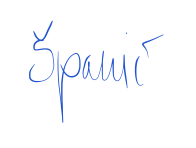 Španić